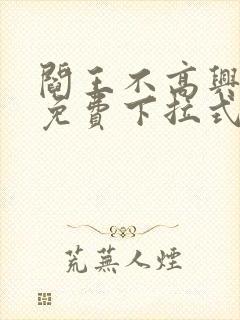 閻王不高興
免費下拉式
荒蕪人煙